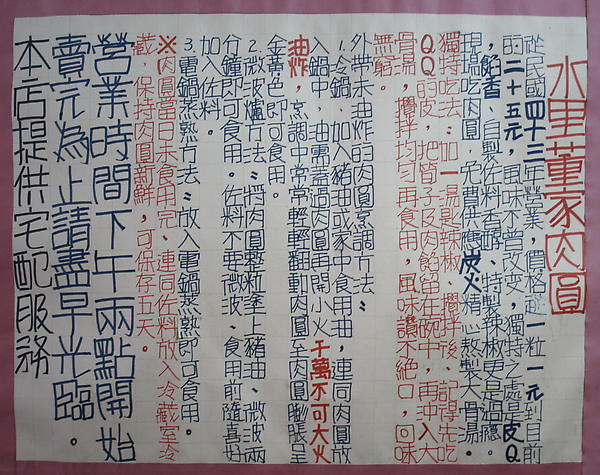 水里董家肉圓
從民國四十三年營業,價格從一粒一元到目前
的二十五元,風味不曾改变,獨特之處是皮Q
,餡香、自製佐料香醇、特製辣椒更是過癮。
現場吃肉圓,免費供應炭火精心熬製大骨湯。
獨特吃法:加一湯匙辣椒、攪拌後、記得先吃
QQ的皮,把筍子及肉餡留在碗中,再沖入大
骨湯,攪拌均勻再食用,風味讚不絕口,回味
無窮。
外帶未油炸的肉圓烹調方法:
1.冷鍋、加入豬油或家中食用油,連同肉圓放
入鍋中,油需蓋過肉圓再開小火千萬不可大火
油炸,烹調中常常輕輕翻動肉圓至肉圓膨脹呈
金黃色即可食用。
2.微波爐方法:將肉圓整粒塗上豬油、微波兩
分鐘即可食用。佐料不要微波、食用前隨喜好
加入佐料。
3.電鍋蒸熟方法:放入電鍋蒸熟即可食用。
※肉圓當日未食用完、連同佐料放入冷藏室冷
藏,保持肉圓新鮮,可保存五天。
營業時間下午兩點開始
賣完為止請盡早光臨。
本店提供宅配服務